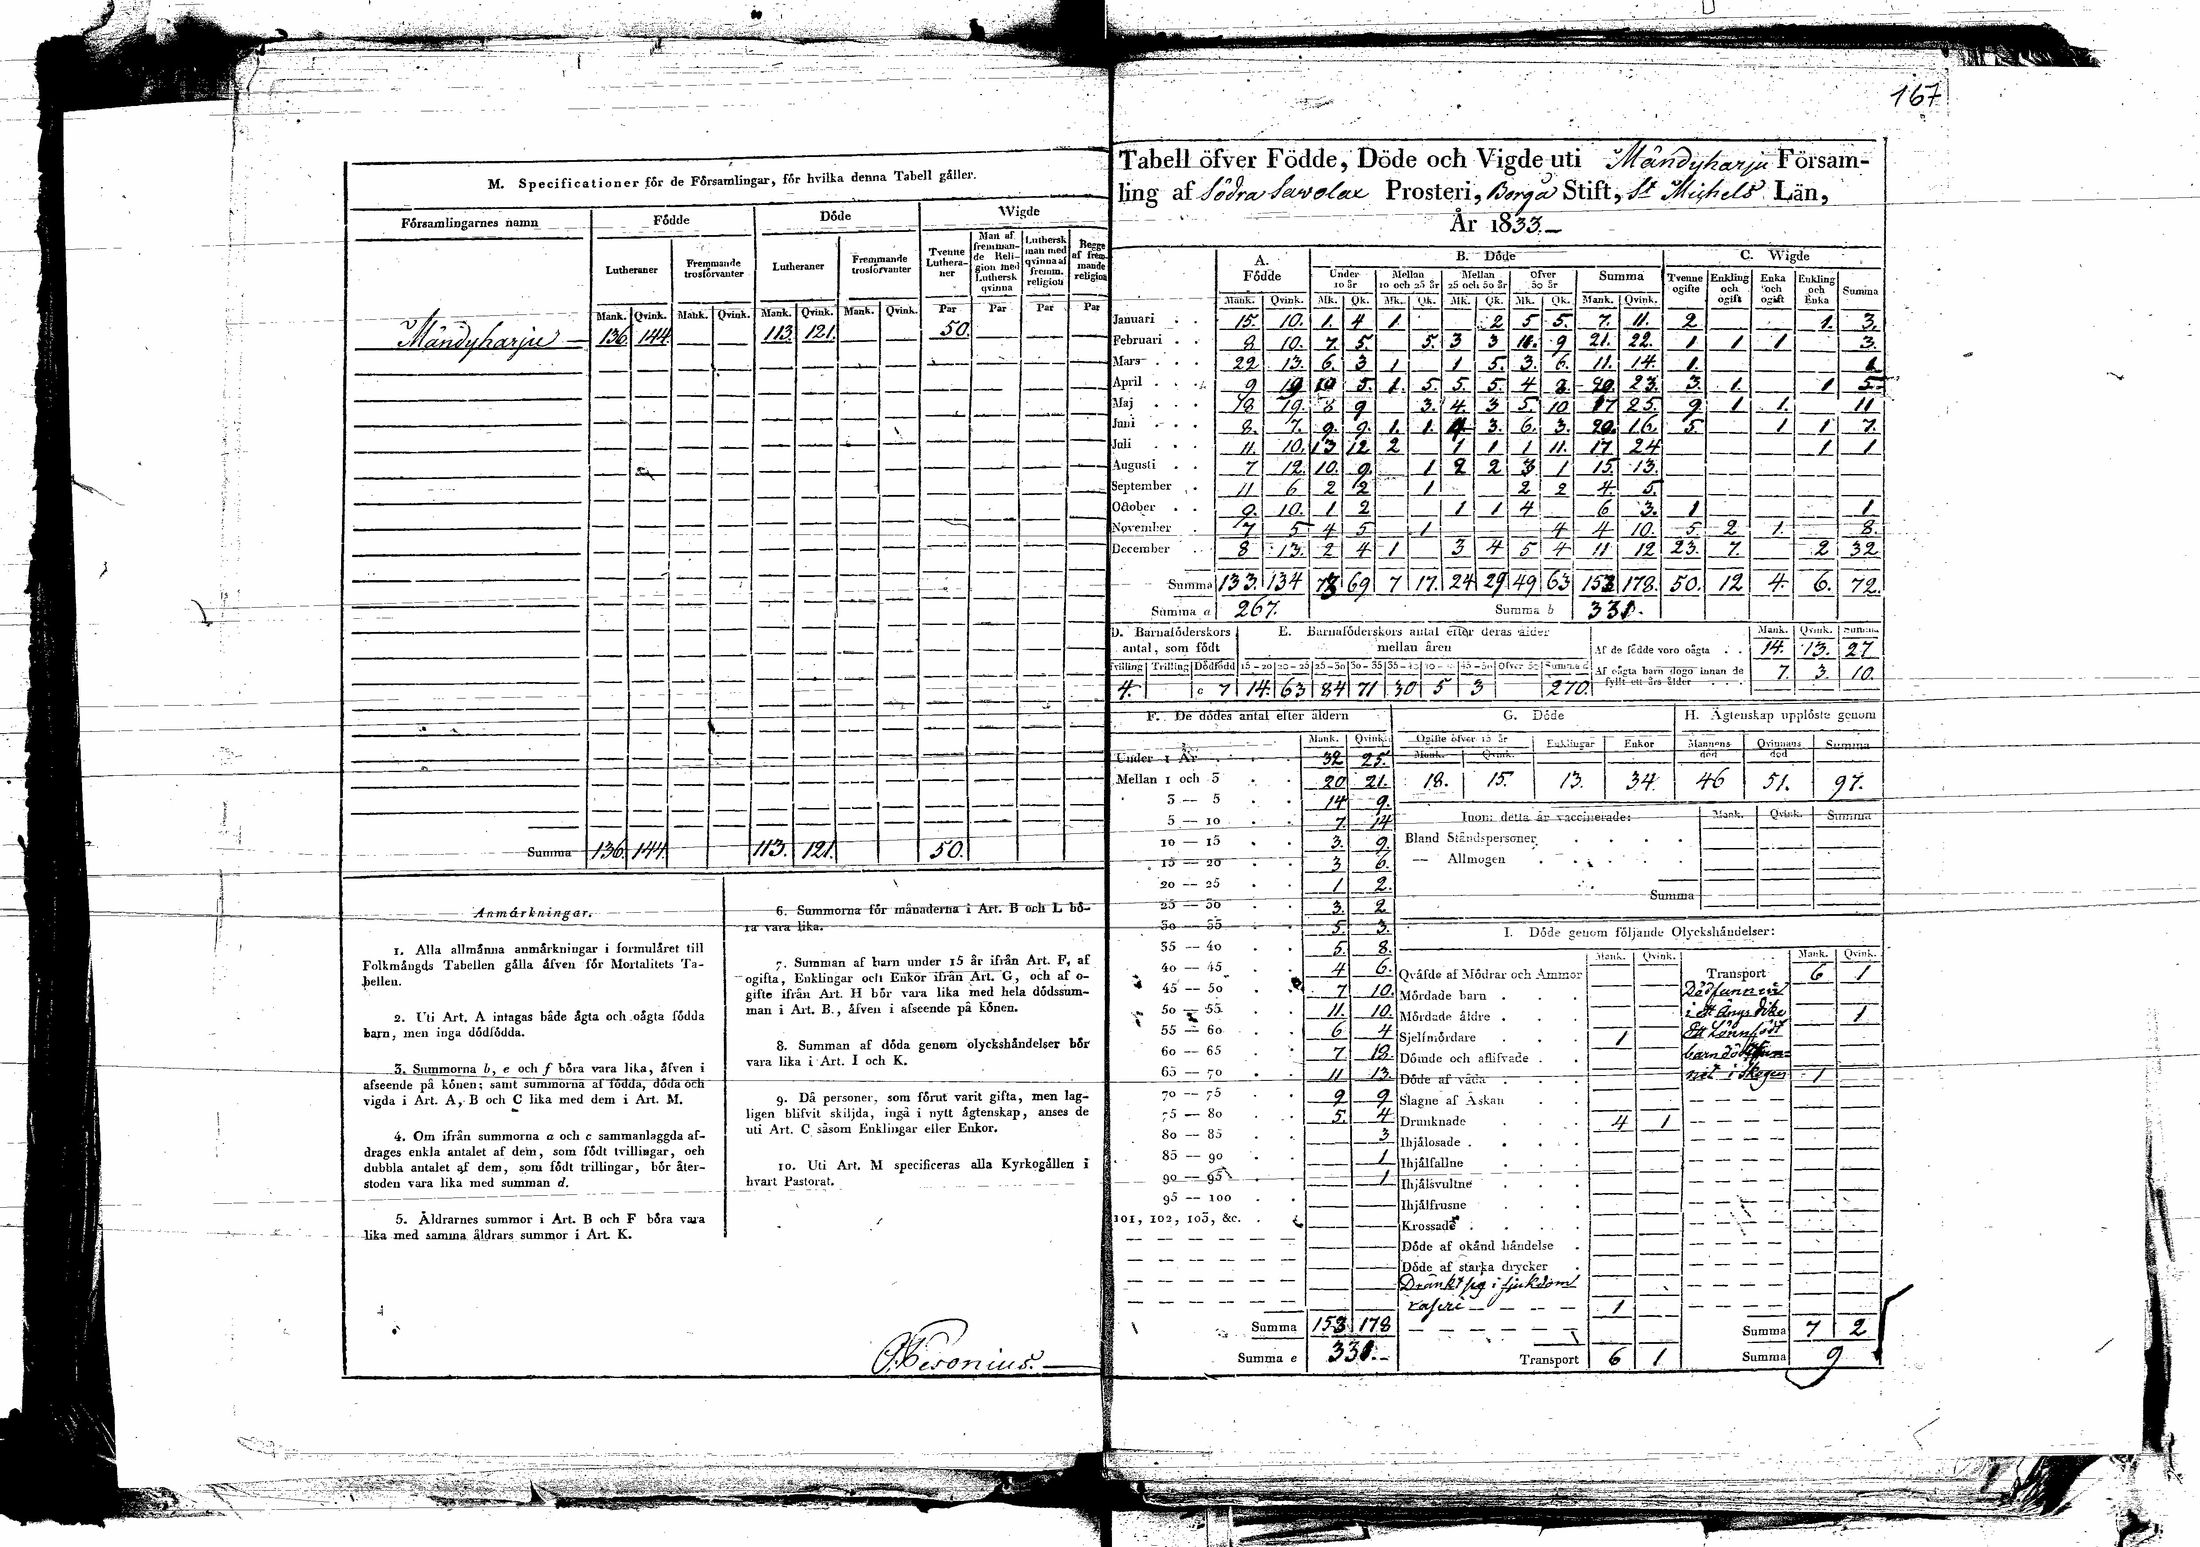 167
M. Specificationer för de Församlingar, för hvilka denna Tabell gäller.
Församlingarnes namn Födde Döde Wigde
Lutheraner Fremmande trosförvanter Lutheraner Fremmande trosförvanter Tvenne Lutheraner Man af fremmande Religion med Luthersk qvinna Luthersk man med qvinna af fremm. religion Begge af fremmande religion
Mank. Qvink. Mank. Qvink. Mank. Qvink. Mank. Qvink. Par Par Par Par
Mändyharju 136. 144. 113. 121. 50.
Summa 136. 144. 113. 121. 50.
Anmärkningar.
1. Alla allmänna anmärkningar i formuläret till
Folkmängds Tabellen gälla äfven för Mortalitets Ta-
bellen.
2. Uti Art. A intagas både ägta och oägta födda
barn, men inga dödfödda.
3. Summorna b, e och f böra vara lika, äfven i
afseende på könen; samt summorna af födda, döda och
vigda i Art. A, B och C lika med dem i Art. M.
4. Om ifrån summorna a och c sammanlaggda af-
drages enkla antalet af dem, som födt tvillingar, och
dubbla antalet af dem, som födt trillingar, bör åter-
stoden vara lika med summan d.
5. Åldrarnes summor i Art. B och F böra vara
lika med samma åldrars summor i Art. K.
6. Summorna för månaderna i Art. B och L bö-
ra vara lika.
7. Summan af barn under 15 år ifrån Art. F, af
ogifta, Enklingar och Enkor ifrån Art. G, och af o-
gifte ifrån Art. H bör vara lika med hela dödssum-
man i Art. B., äfven i afseende på könen.
8. Summan af döda genom olyckshändelser bör
vara lika i Art. I och K.
9. Då personer, som förut varit gifta, men lag-
ligen blifvit skiljda, ingå i nytt ägtenskap, anses de
uti Art. C såsom Enklingar eller Enkor.
10. Uti Art. M specificeras alla Kyrkogällen i
hvart Pastorat.
Tabell öfver Födde, Döde och Vigde uti Mändyharju Försam-
ling af Södra Savolax Prosteri, Borgå Stift, St Michels Län,
År 1833.
A. Födde B. Döde C. Wigde
Under 10 år Mellan 10 och 25 år Mellan 25 och 50 år Öfver 50 år Summa Tvenne ogifte Enkling och ogift Enka och ogift Enkling och Enka Summa
Mank. Qvink. Mk. Qk. Mk. Qk. Mk. Qk. Mk. Qk. Mank. Qvink.
Januari 15. 10. 1. 4 1. 2 5 5. 7. 11. 2 1. 3.
Februari 8 10. 7. 5. 5. 3 3 11. 9 21. 22. 1 1 1 3.
Mars 22 13. 6. 3 1 1 5. 3. 6. 11. 14. 1. 1.
April 9 19 10 5. 1. 5. 5 5. 4 8 20. 23. 3. 1. 1 5.
Maj 18 19. 8 9 3. 4. 3 5. 10 17 25. 9. 1 1. 11
Juni 8. 7. 9. 9. 1. 1. 4 3. 6. 3. 20. 16. 5. 1 1 7.
Juli 11. 10. 13 12 2 1 1 1 11. 17 24 1 1
Augusti 7 12. 10. 9. 1 2 2 3 1 15. 13.
September 11 6 2 2 1 2 2 4. 5.
October 9. 10. 1 2 1 1 4 6 3. 1 1
November 7 5 4 5 1 4 4 10. 5. 2 1. 8.
December 8 13. 2 4 1 3 4 5 4 11 12 23. 7. 2 32
Summa 133. 134 73 69 7 17. 24 29 49 63 153 178. 50. 12 4. 6. 72.
Summa a 267. Summa b 331.
D. Barnaföderskors antal, som födt E. Barnaföderskors antal efter deras ålder mellan åren Mank. Qvink. Summa
Tvilling Trilling Dödfödd 15-20 20-25 25-30 30-35 35-40 40-45 45-50 Öfver 50 Summa d
4. c 7 14. 63 84 71 30 5 3 270.
Af de födde voro oägta 14. 13. 27
Af oägta barn dogo innan de fyllt ett års ålder 7. 3. 10.
F. De dödes antal efter åldern
Mank. Qvink.
Under 1 År 32 25.
Mellan 1 och 3 20 21.
3 — 5 14 9.
5 — 10 7. 14
10 — 15 3. 9.
15 — 20 3 6.
20 — 25 1 2.
25 — 30 3. 2
30 — 35 5. 3.
35 — 40 5. 8.
40 — 45 4 6.
45 — 50 7 10.
50 — 55 11. 10.
55 — 60 6 4
60 — 65 7 18.
65 — 70 11 13.
70 — 75 9 9
75 — 80 5. 4
80 — 85 3
85 — 90 1
90 — 95 1
95 — 100
101, 102, 103, &c.
Summa 153 178
Summa e 331.
G. Döde H. Ägtenskap upplöste genom
Ogifte öfver 15 år Enklingar Enkor Mannens död Qvinnans död Summa
Mank. Qvink.
18. 15. 13. 34. 46 51. 97.
Inom detta år vaccinerade: Mank. Qvink. Summa
Bland Ståndspersoner
— Allmogen
Summa
I. Döde genom följande Olyckshändelser:
Mank. Qvink. Mank. Qvink.
Qväfde af Mödrar och Ammor
Mördade barn
Mördade äldre
Sjelfmördare 1
Dömde och aflifvade
Döde af våda
Slagne af Åskan
Drunknade 4 1
Ihjälosade
Ihjälfallne
Ihjälsvultne
Ihjälfrusne
Krossade
Döde af okänd händelse
Döde af starka drycker
Dränkt sig i sjukdom
raseri 1
Transport 6 1
Transport 6 1
Död funnen
i ett ängs dike 1
Ett Lönnfödt
barn död fun-
net i Skogen 1
Summa 7 2
Summa 9